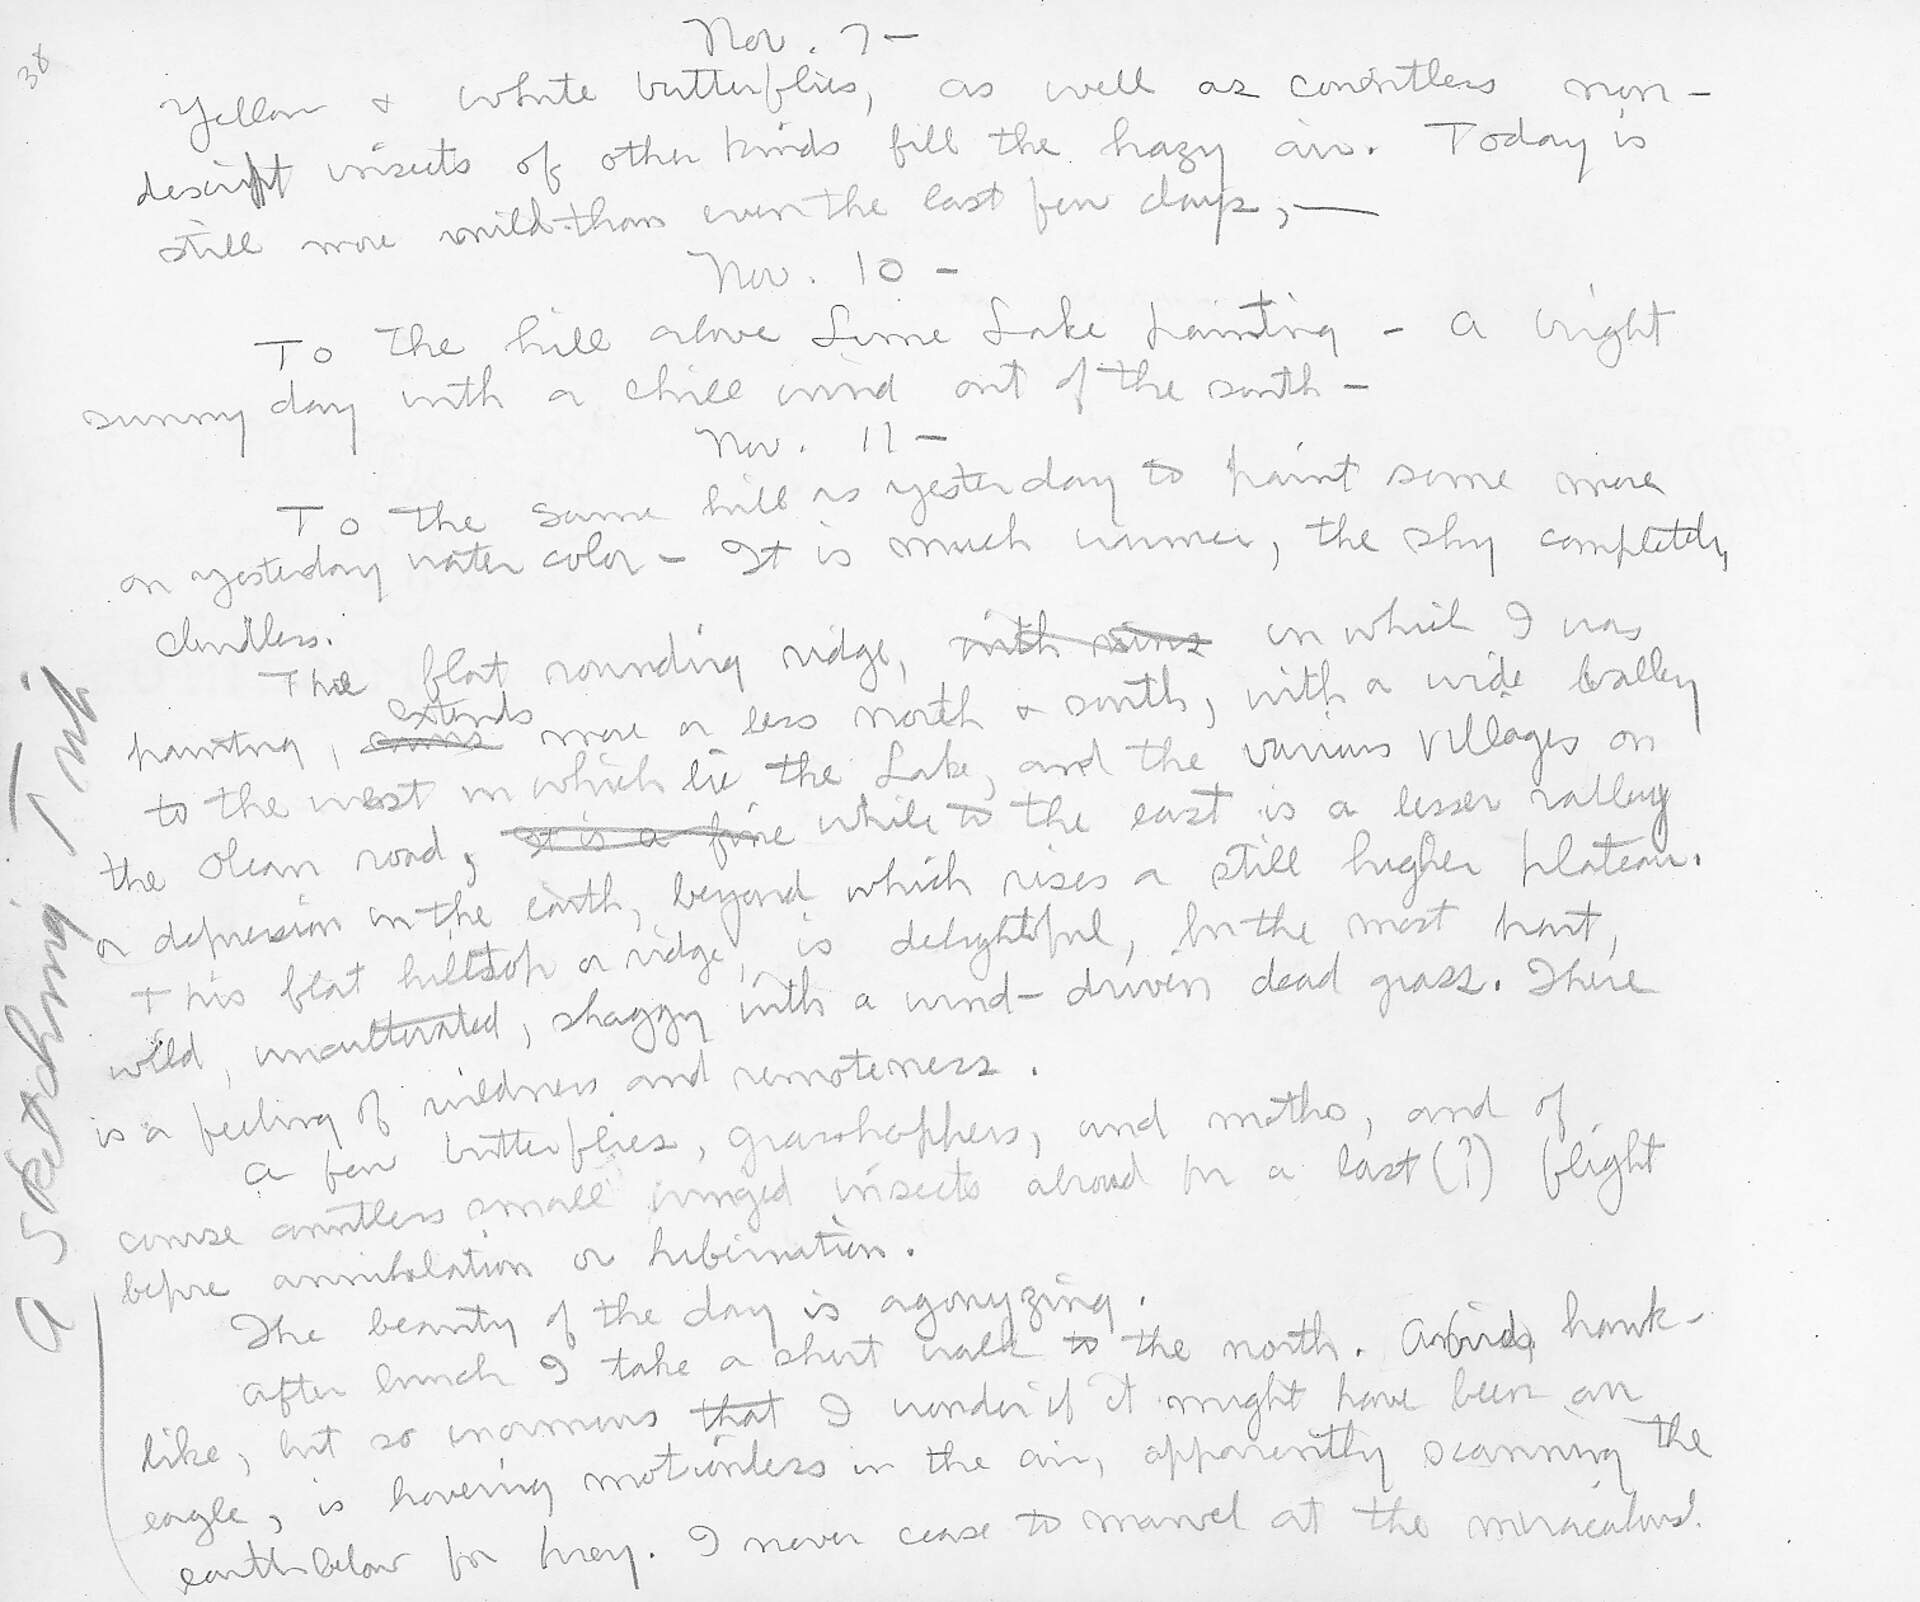 38
Nov. 7 —
Yellow & white butterflies, as well as countless non-
descript insects of other kinds fill the hazy air. Today is
still more mild than even the last few days, —
Nov. 10 —
To the hill above Lime Lake painting - a bright
sunny day with a chill wind out of the south —
Nov. 11 —
To the same hill as yesterday to paint some more
on yesterday water color — It is much warmer, the sky completely
cloudless.
The flat rounding ridge, with runs on which I was
painting, runs extends more or less north & south, with a wide valley
to the west in which lie the Lake, and the various villages on
the Olean road, It is a fine while to the east is a lesser valley
or depression in the earth, beyond which rises a still higher plateau.
This flat hilltop or ridge, is delightful, for the most part,
wild, uncultivated, shaggy with a wind-driven dead grass. There
is a feeling of wildness and remoteness.
A few butterflies, grasshoppers, and moths, and of
course countless small winged insects abroad for a last (?) flight
before annihilation or hibernation.
The beauty of the day is agonyzing.
After lunch I take a short walk to the north. A bird, hawk-
like, but so enormous that I wonder if it might have been an
eagle, is hovering motionless in the air, apparently scanning the
earth below for prey. I never cease to marvel at the miraculous
A Sketching Trip